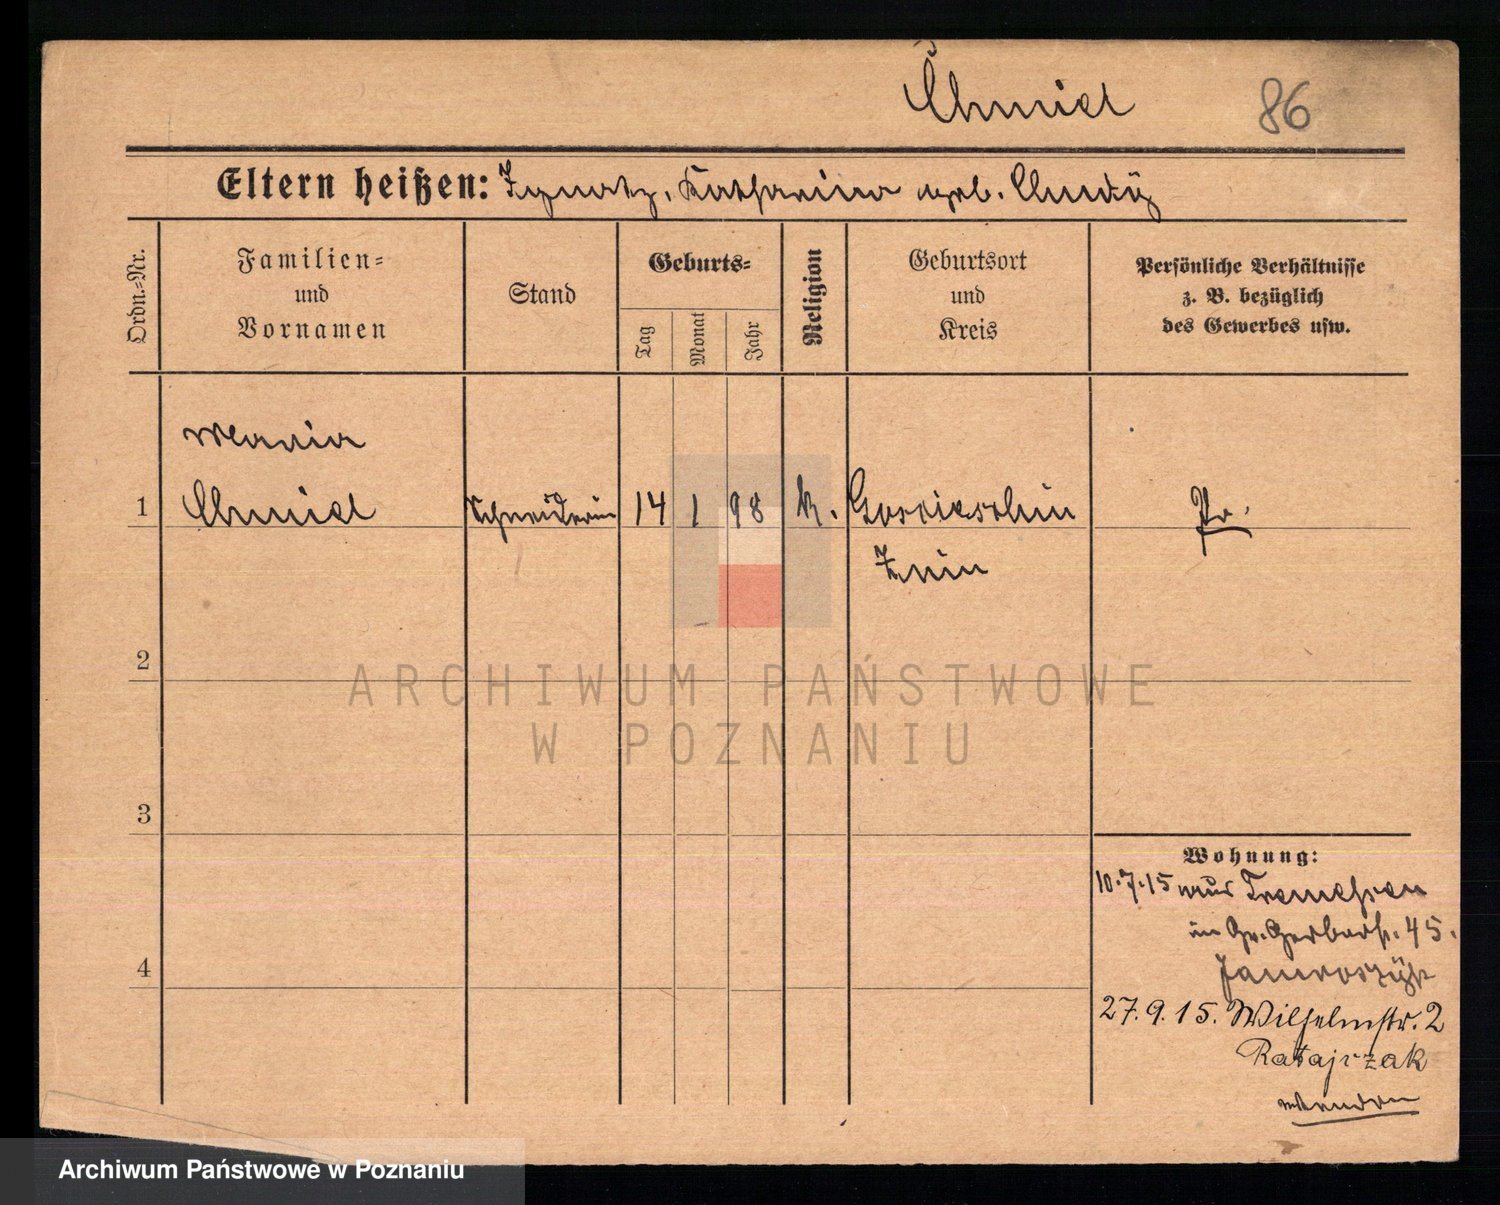 Chmiel 86
Eltern heißen: Ignatz, Katharina geb. Chudy
Ordn.=Nr.
Familien=
und
Vornamen
Stand
Geburts=
Tag
Monat
Jahr
Religion
Geburtsort
und
Kreis
Persönliche Verhältnisse
z. B. bezüglich
des Gewerbes usw.
Maria
1 Chmiel Schneiderin 14 1 98 k. Gorzieschin Pr.
Znin
2
ARCHIWUM PAŃSTWOWE
W POZNANIU
3
Wohnung:
10.7.15 aus Tremessen
in Gr. Gerberstr. 45.
4
27.9.15. Wilhelmstr. 2
Ratajczak
wenden
Archiwum Państwowe w Poznaniu